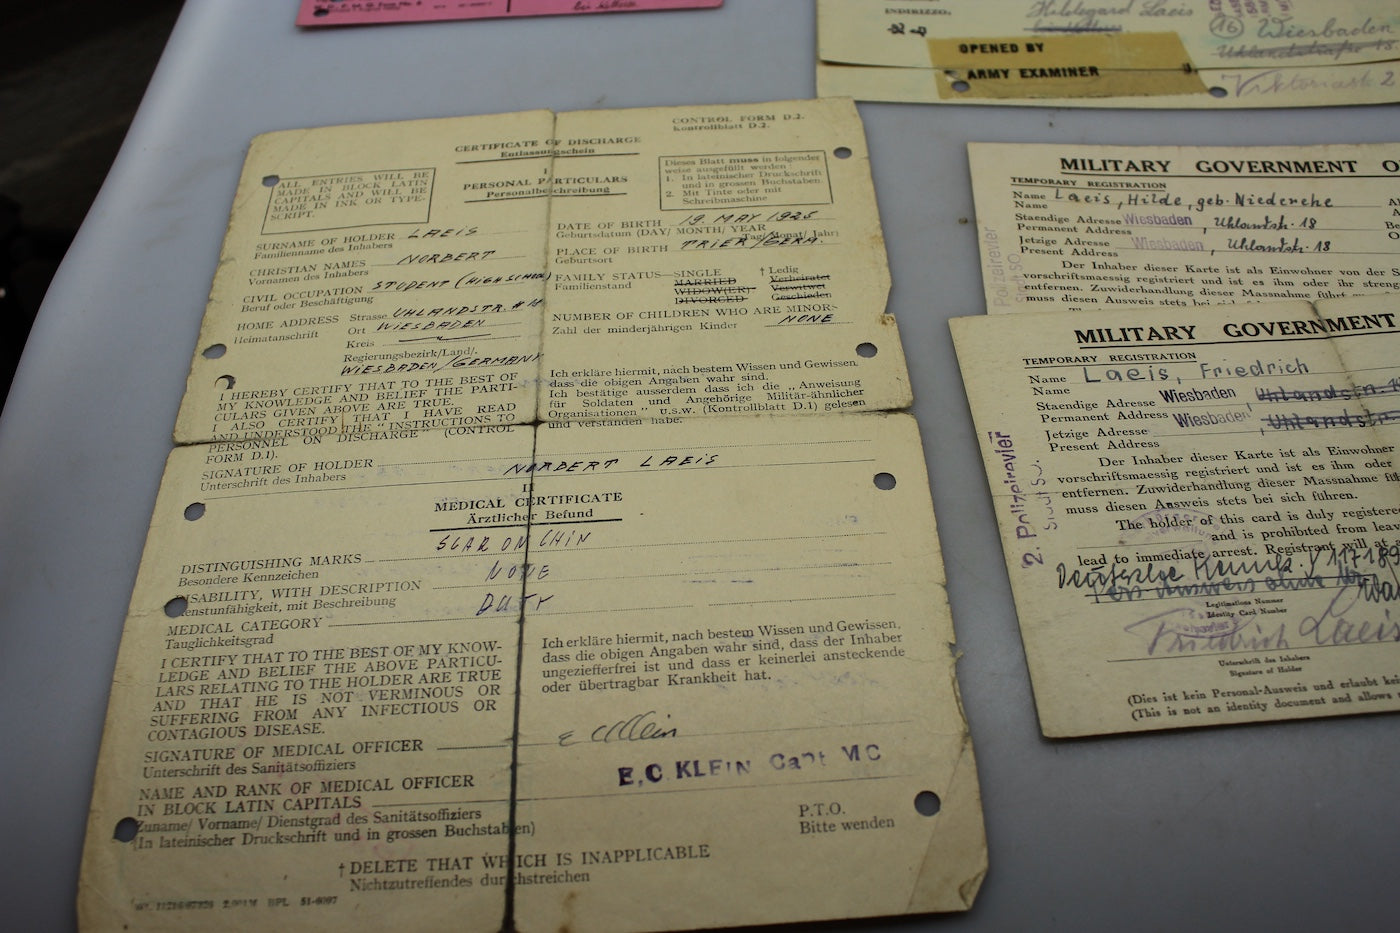 bei Kellerer
INDIRIZZO.
Hildegard Laeis
16 Wiesbaden
Uhlandstraße 18
Viktoriastr. 2
OPENED BY
ARMY EXAMINER
CONTROL FORM D.2.
Kontrollblatt D.2.
CERTIFICATE OF DISCHARGE
Entlassungschein
I
PERSONAL PARTICULARS
Personalbeschreibung
ALL ENTRIES WILL BE
MADE IN BLOCK LATIN
CAPITALS AND WILL BE
MADE IN INK OR TYPE-
SCRIPT.
Dieses Blatt muss in folgender
weise ausgefüllt werden:
1. In lateinischer Druckschrift
und in grossen Buchstaben.
2. Mit Tinte oder mit
Schreibmaschine
SURNAME OF HOLDER LAEIS
Familienname des Inhabers
CHRISTIAN NAMES NORBERT
Vornamen des Inhabers
CIVIL OCCUPATION STUDENT (HIGH SCHOOL)
Beruf oder Beschäftigung
HOME ADDRESS Strasse UHLANDSTR. # 18
Heimatanschrift Ort WIESBADEN
Kreis
Regierungsbezirk/Land/.
WIESBADEN/GERMANY
DATE OF BIRTH 19. MAY 1925
Geburtsdatum (DAY/ MONTH/ YEAR Tag/Monat/ Jahr)
PLACE OF BIRTH TRIER/GERM.
Geburtsort
FAMILY STATUS—SINGLE † Ledig
Familienstand MARRIED Verheiratet
WIDOW(ER) Verwitwet
DIVORCED Geschieden
NUMBER OF CHILDREN WHO ARE MINORS
Zahl der minderjährigen Kinder NONE
I HEREBY CERTIFY THAT TO THE BEST OF
MY KNOWLEDGE AND BELIEF THE PARTI-
CULARS GIVEN ABOVE ARE TRUE.
I ALSO CERTIFY THAT I HAVE READ
AND UNDERSTOOD THE "INSTRUCTIONS TO
PERSONNEL ON DISCHARGE" (CONTROL
FORM D.1).
Ich erkläre hiermit, nach bestem Wissen und Gewissen,
dass die obigen Angaben wahr sind.
Ich bestätige ausserdem dass ich die „Anweisung
für Soldaten und Angehörige Militär-ähnlicher
Organisationen" u.s.w. (Kontrollblatt D.1) gelesen
und verstanden habe.
SIGNATURE OF HOLDER NORBERT LAEIS
Unterschrift des Inhabers
II
MEDICAL CERTIFICATE
Ärztlicher Befund
DISTINGUISHING MARKS SCAR ON CHIN
Besondere Kennzeichen
DISABILITY, WITH DESCRIPTION NONE
Dienstunfähigkeit, mit Beschreibung
MEDICAL CATEGORY DUTY
Tauglichkeitsgrad
I CERTIFY THAT TO THE BEST OF MY KNOW-
LEDGE AND BELIEF THE ABOVE PARTICU-
LARS RELATING TO THE HOLDER ARE TRUE
AND THAT HE IS NOT VERMINOUS OR
SUFFERING FROM ANY INFECTIOUS OR
CONTAGIOUS DISEASE.
Ich erkläre hiermit, nach bestem Wissen und Gewissen,
dass die obigen Angaben wahr sind, dass der Inhaber
ungeziefferfrei ist und dass er keinerlei ansteckende
oder übertragbar Krankheit hat.
SIGNATURE OF MEDICAL OFFICER E C Klein
Unterschrift des Sanitätsoffiziers
NAME AND RANK OF MEDICAL OFFICER E.C. KLEIN Capt MC
IN BLOCK LATIN CAPITALS
Zuname/ Vorname/ Dienstgrad des Sanitätsoffiziers
(In lateinischer Druckschrift und in grossen Buchstaben)
P.T.O.
Bitte wenden
† DELETE THAT WHICH IS INAPPLICABLE
Nichtzutreffendes durchstreichen
BPL 51-6097
MILITARY GOVERNMENT O
TEMPORARY REGISTRATION
Name Laeis, Hilde, geb. Niederehe
Name
Staendige Adresse Wiesbaden, Uhlandstr. 18
Permanent Address
Jetzige Adresse Wiesbaden, Uhlandstr. 18
Present Address
Der Inhaber dieser Karte ist als Einwohner von der S
vorschriftsmaessig registriert und ist es ihm oder ihr streng
entfernen. Zuwiderhandlung dieser Massnahme führt
muss diesen Ausweis stets bei sich
MILITARY GOVERNMENT
TEMPORARY REGISTRATION
Name Laeis, Friedrich
Name
Staendige Adresse Wiesbaden Uhlandstr. 1
Permanent Address
Jetzige Adresse Wiesbaden, Uhlandstr.
Present Address
Der Inhaber dieser Karte ist als Einwohner
vorschriftsmaessig registriert und ist es ihm oder
entfernen. Zuwiderhandlung dieser Massnahme fü
muss diesen Ausweis stets bei sich führen.
The holder of this card is duly registered
and is prohibited from leav
lead to immediate arrest. Registrant will at a
2. Polizeirevier
Legitimations Nummer
Identity Card Number
Friedrich Laeis
Unterschrift des Inhabers
Signature of Holder
(Dies ist kein Personal-Ausweis und erlaubt kei
(This is not an identity document and allows